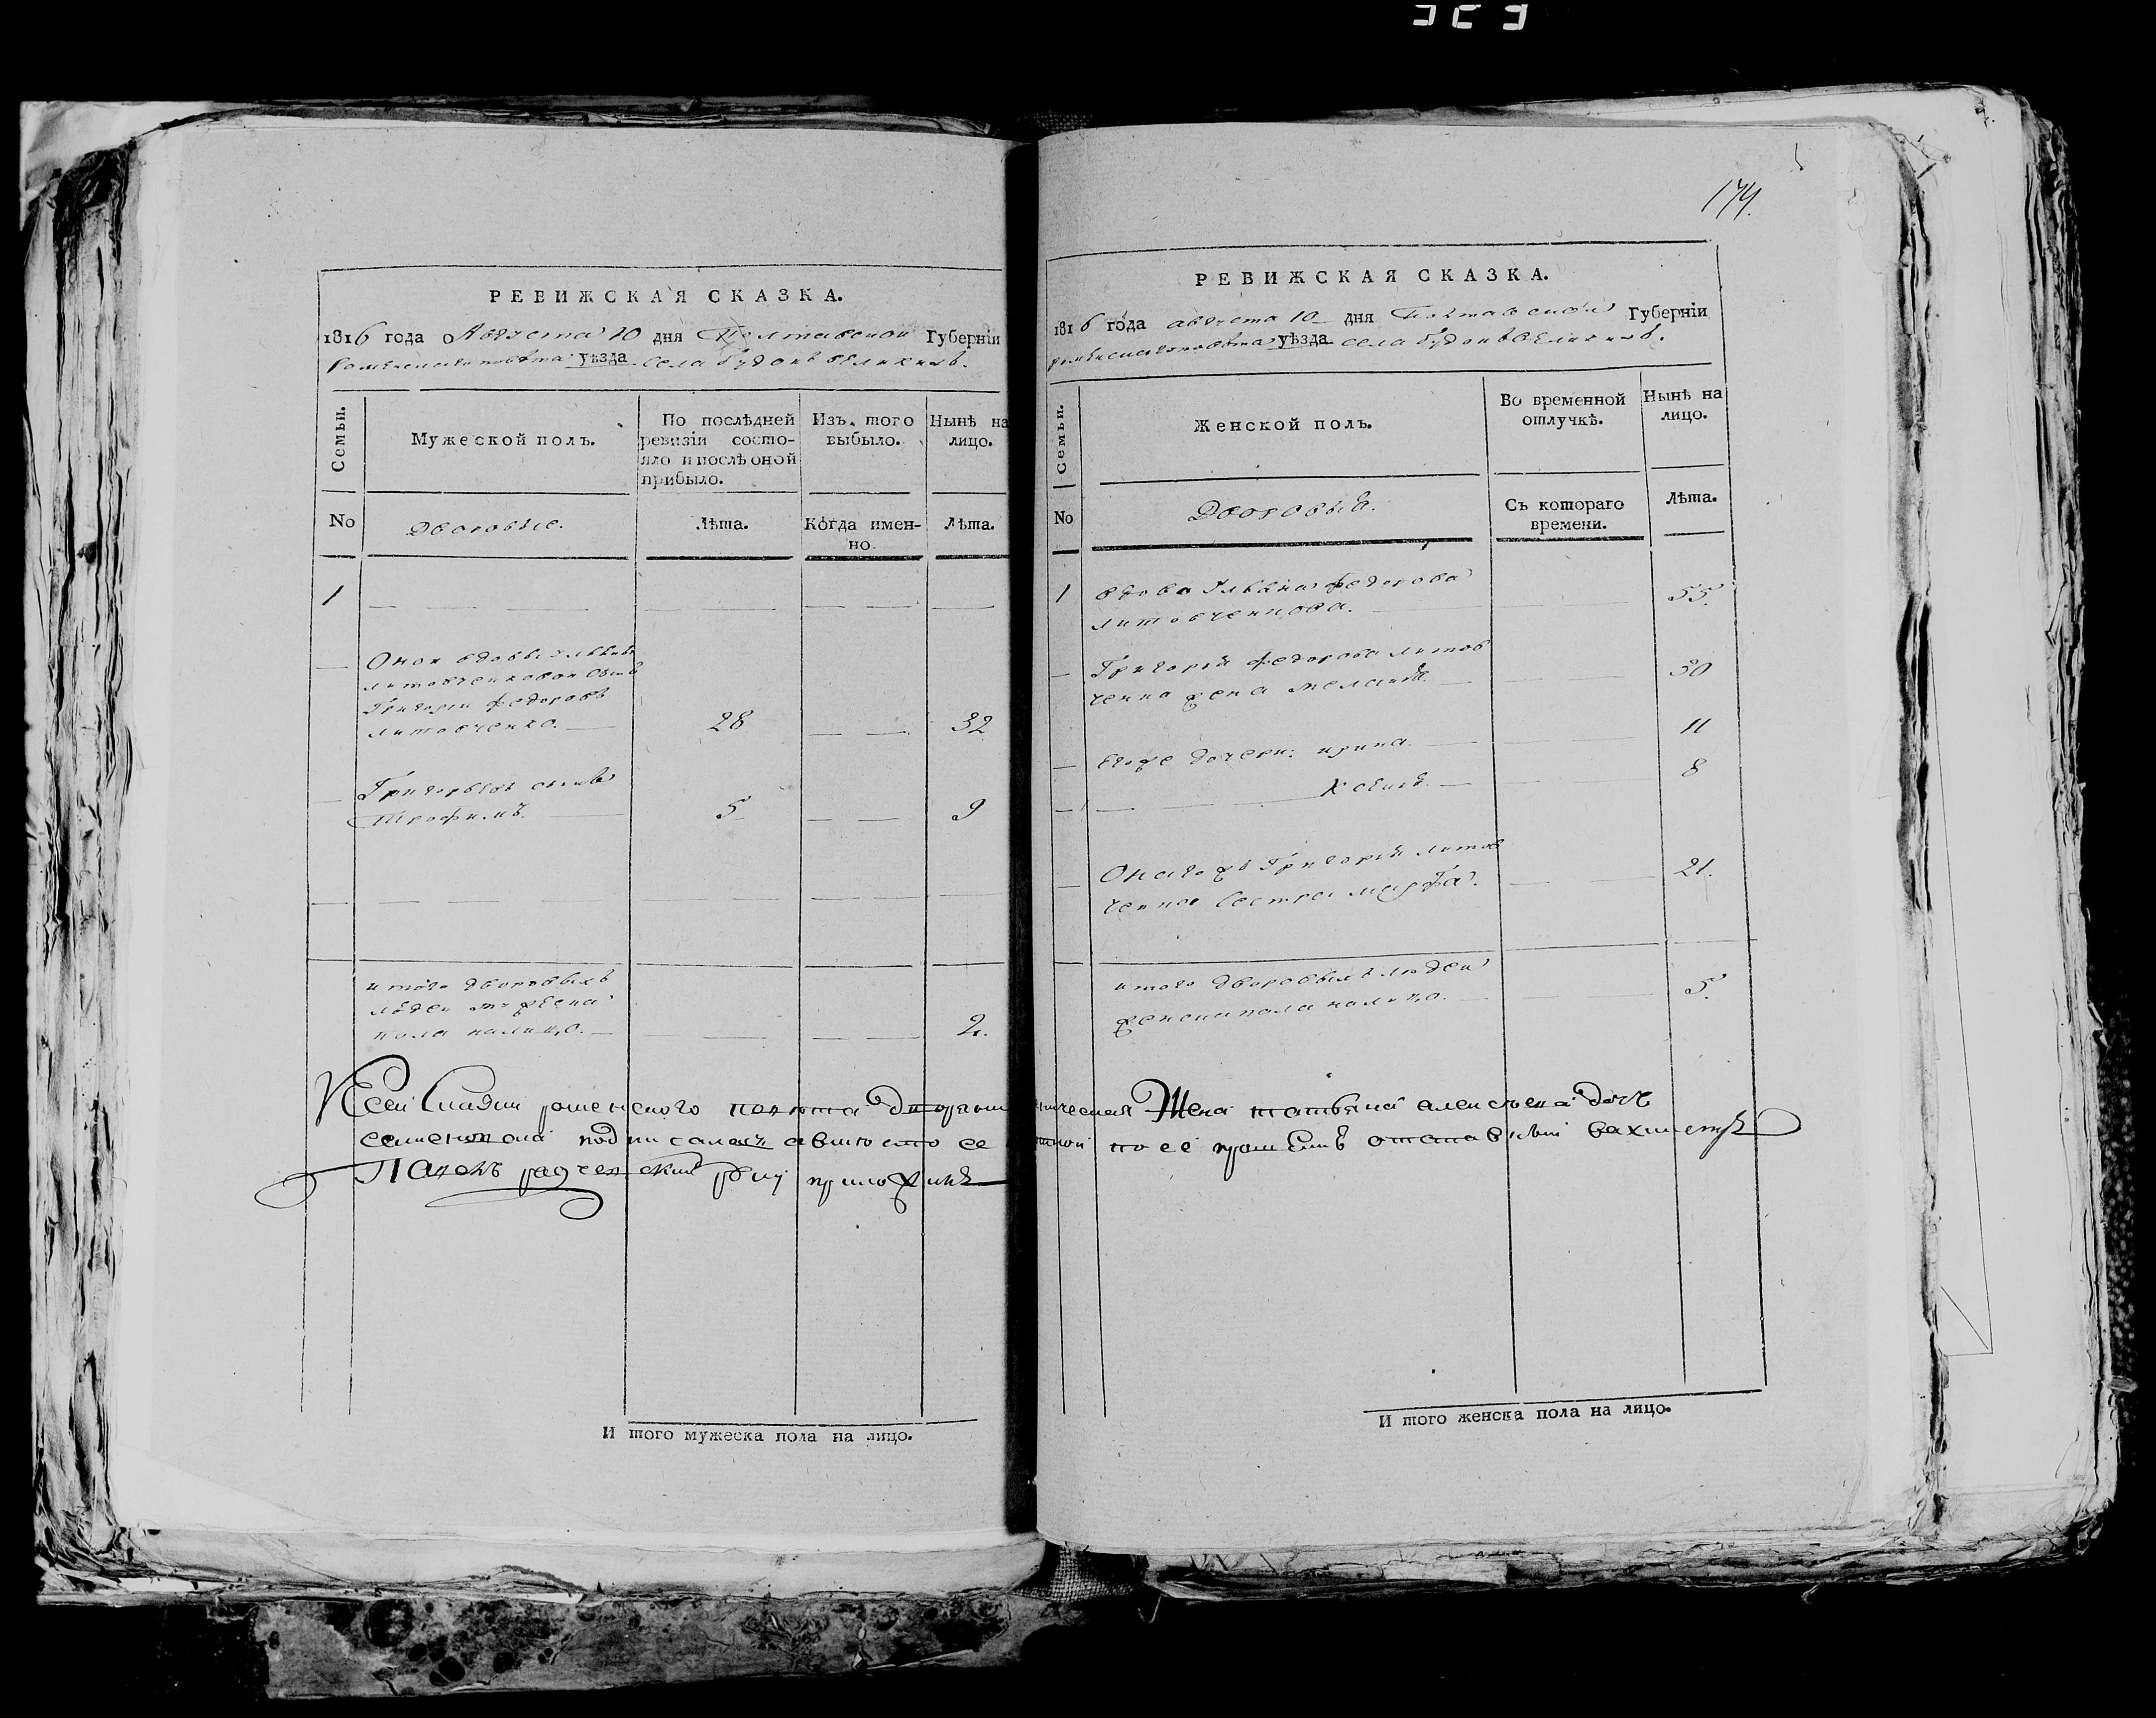 174.
РЕВИЖСКАЯ СКАЗКА.
1816 года Августа 10 дня Полтавской Губерніи
Роменского повѣта уѣзда села Будокъ великихъ.
Семьи.
Мужеской полъ.
По послѣдней ревизіи состояло и послѣ оной прибыло.
Изъ того выбыло.
Нынѣ на лицо.
No
Дворовые.
Лѣта.
Когда именно.
Лѣта.
1
Оной вдовы
литовченковой сынъ
Григорій федоровъ
литовченко. 28 32
Григорьевъ сынъ
Трофимъ. 5 9
итого дворовыхъ
людей мужеска
пола налицо. 2.
И того мужеска пола на лицо.
РЕВИЖСКАЯ СКАЗКА.
1816 года августа 10 дня Полтавской Губерніи
роменского повѣта уѣзда села Будокъ великихъ.
Семьи.
Женской полъ.
Во временной отлучкѣ.
Нынѣ на лицо.
No
Дворовыя.
Съ котораго времени.
Лѣта.
1 вдова федорова
литовченкова. 55.
Григорія федорова литов
ченка жена 30
Егоже дочери: ирина. 11
8
Онагожъ Григорія литов
ченка сестра марфа. 21.
итого дворовыхъ людей
женска пола налицо. 5.
роменского повѣта жена татьяна алексѣева дочь
подписалась а вместо ее по ее прошенію отставный вахмистръ
руку приложилъ
И того женска пола на лицо.